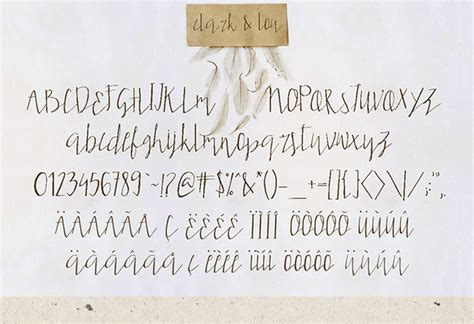 clark & lou
ABCDEFGHIJKLM NOPQRSTUVWXYZ
abcdefghijklmnopqrstuvwxyz
0123456789~!?@#$%^&*()-_+=[]{}<>\|/;:'",.
ÄÀÁÂÃÅ Ç ËÈÉÊ ÏÌÍÎ ÖÒÓÔÕ ÜÙÚÛ
äàáâãå ç ëèéê ïìíî öòóôõ üùúû